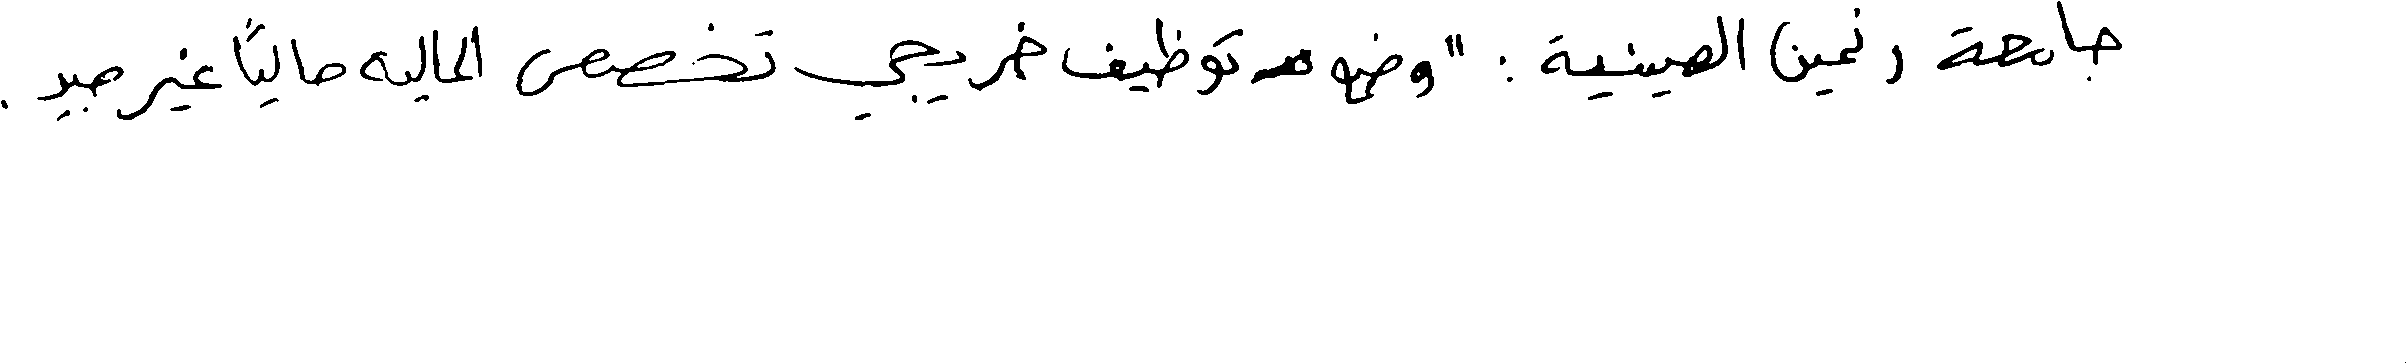 جامعة رنمين الصينية : "وضع توظيف خريجي تخصص الماليه حاليًا غير جيد .